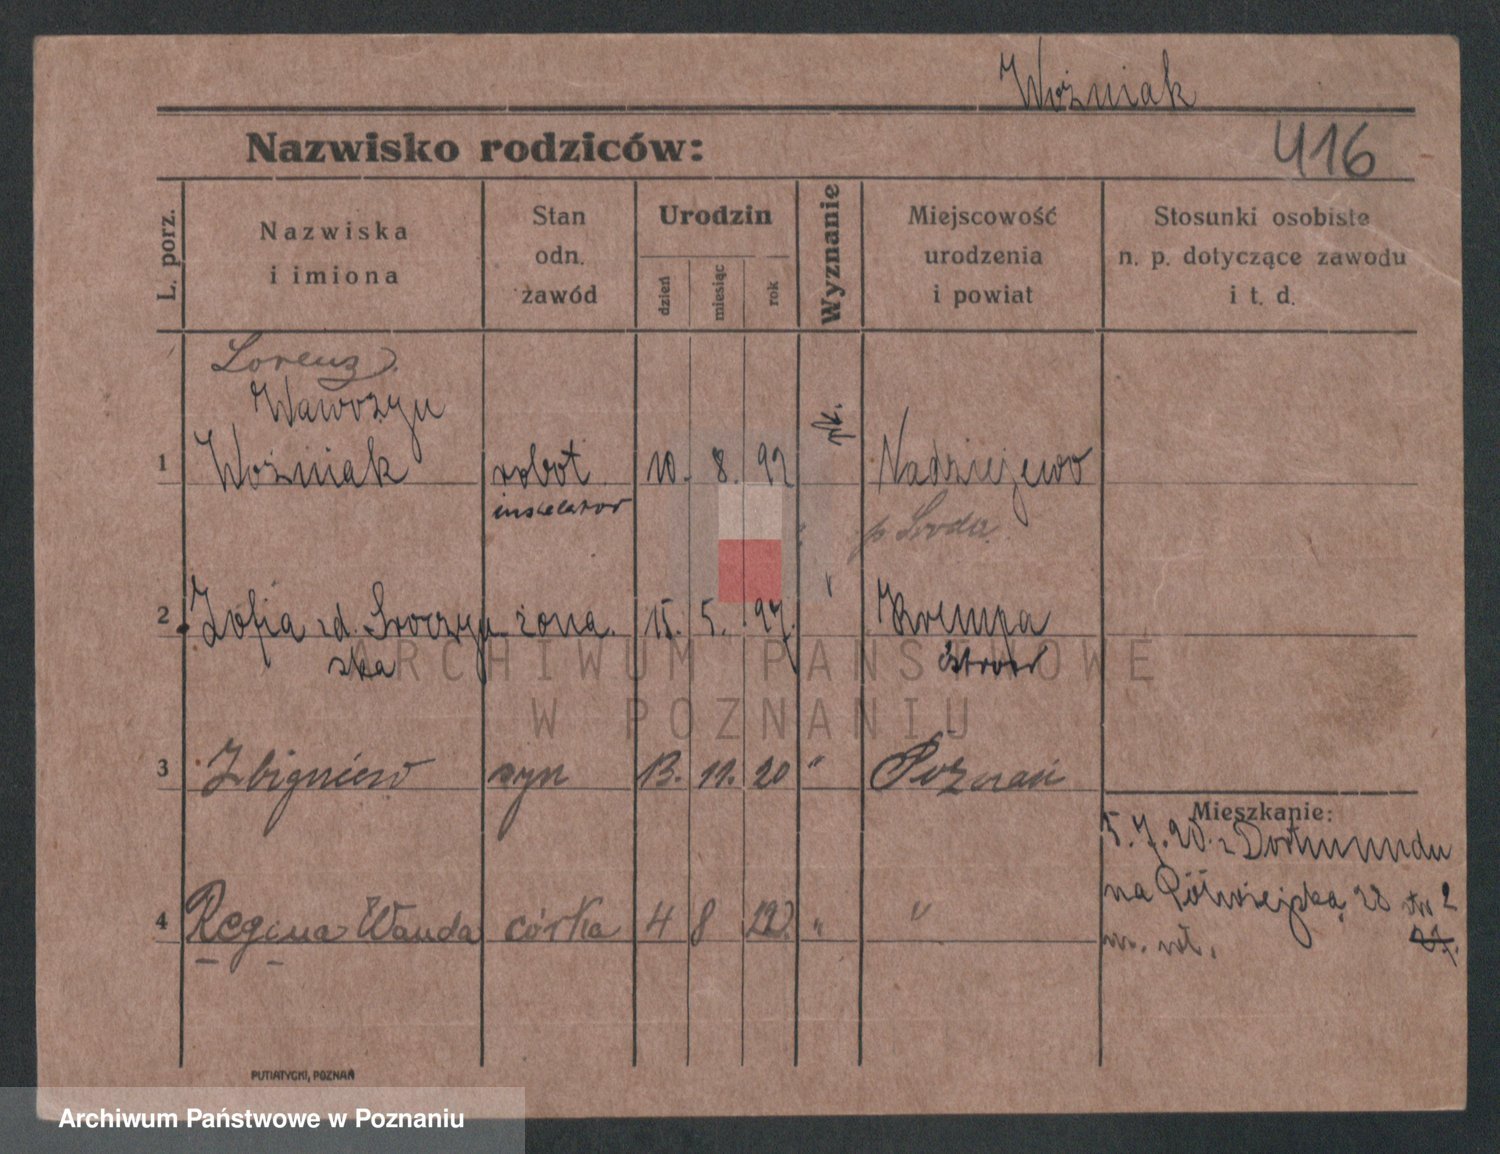 Woźniak
Nazwisko rodziców:
416
L. porz.
Nazwiska
i imiona
Stan
odn.
zawód
Urodzin
dzień
miesiąc
rok
Wyznanie
Miejscowość
urodzenia
i powiat
Stosunki osobiste
n. p. dotyczące zawodu
i t. d.
Lorenz
Wawrzyn
1 Woźniak robot. 10. 8. 92 rk. Nadziejewo
p. Środa
2 Zofia zd. Sroczyń żona. 15. 5. 97. " Krempa
ska Ostrów
3 Zbigniew syn 13. 11. 20 " Poznań
Mieszkanie:
5. 7. 20. z Dortmundu
na Półwiejską 28
4 Regina Wanda córka 4 8 22. " "
PUTIATYCKI, POZNAŃ
ARCHIWUM PAŃSTWOWE
W POZNANIU
Archiwum Państwowe w Poznaniu